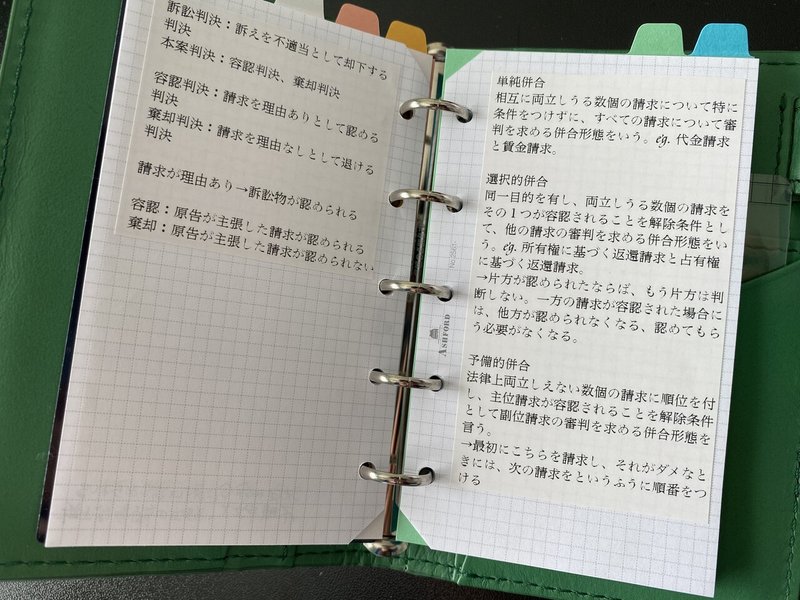 訴訟判決：訴えを不適当として却下する
判決
本案判決：容認判決、棄却判決
容認判決：請求を理由ありとして認める
判決
棄却判決：請求を理由なしとして退ける
判決
請求が理由あり→訴訟物が認められる
容認：原告が主張した請求が認められる
棄却：原告が主張した請求が認められない
単純併合
相互に両立しうる数個の請求について特に
条件をつけずに、すべての請求について審
判を求める併合形態をいう。eg. 代金請求
と賃金請求。
選択的併合
同一目的を有し、両立しうる数個の請求を
その１つが容認されることを解除条件とし
て、他の請求の審判を求める併合形態をい
う。eg. 所有権に基づく返還請求と占有権
に基づく返還請求。
→片方が認められたならば、もう片方は判
断しない。一方の請求が容認された場合に
は、他方が認められなくなる、認めてもら
う必要がなくなる。
予備的併合
法律上両立しえない数個の請求に順位を付
し、主位請求が容認されることを解除条件
として副位請求の審判を求める併合形態を
言う。
→最初にこちらを請求し、それがダメなと
きには、次の請求をというふうに順番をつ
ける
ASHFORD